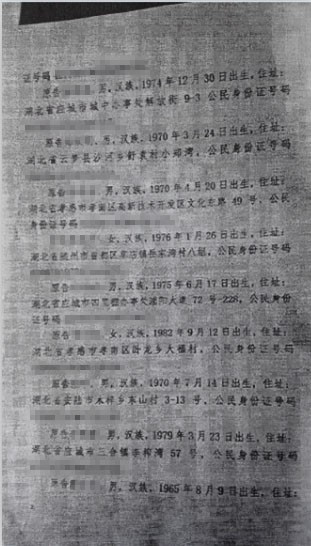 证号码
男，汉族，1974 年 12 月 30 日出生，住址：
湖北省应城市城中办事处解放街 9-3 公民身份证号码
原告 男，汉族，1970 年 3 月 24 日出生，住址：
湖北省云梦县沙河乡舒袁村小邓湾，公民身份证号码
原告 男，汉族，1970 年 4 月 20 日出生，住址：
湖北省孝感市孝南区高新技术开发区文化东路 49 号，公民
身份证号码
女，汉族，1976 年 1 月 26 日出生，住址：
湖北省随州市曾都区 镇岳家湾村八组，公民身份证号码
原告 男，汉族，1975 年 6 月 17 日出生，住址：
湖北省应城市四里棚办事处蒲阳大道 72 号-228，公民身份
证号码
原告 女，汉族，1982 年 9 月 12 日出生，住址：
湖北省孝感市孝南区卧龙乡大福村，公民身份证号码
原告 男，汉族，1970 年 7 月 14 日出生，住址：
湖北省安陆市木梓乡东山村 3-13 号，公民身份证号码
原告 男，汉族，1979 年 3 月 23 日出生，住址：
湖北省应城市三合镇 湾 57 号，公民身份证号码
原告 男，汉族，1965 年 8 月 9 日出生，住址：